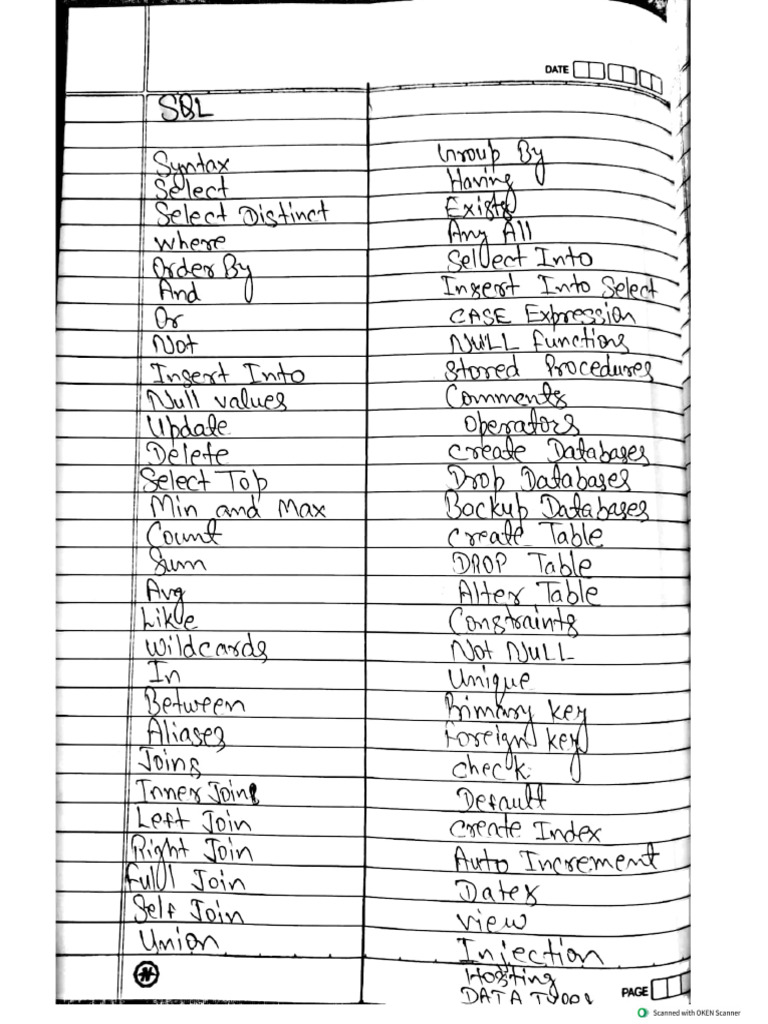 DATE
SQL
Syntax
Select
Select Distinct
Where
Order By
And
Or
Not
Insert Into
Null values
Update
Delete
Select Top
Min and Max
Count
Sum
Avg
Like
Wildcards
In
Between
Aliases
Joins
Inner Join
Left Join
Right Join
Full Join
Self Join
Union
Group By
Having
Exists
Any All
Select Into
Insert Into Select
CASE Expression
NULL functions
Stored Procedures
Comments
Operators
Create Databases
Drop Databases
Backup Databases
Create Table
DROP Table
Alter Table
Constraints
Not NULL
Unique
Primary key
Foreign key
check
Default
Create Index
Auto Increment
Dates
View
Injection
Hosting
DATA
PAGE
Scanned with OKEN Scanner